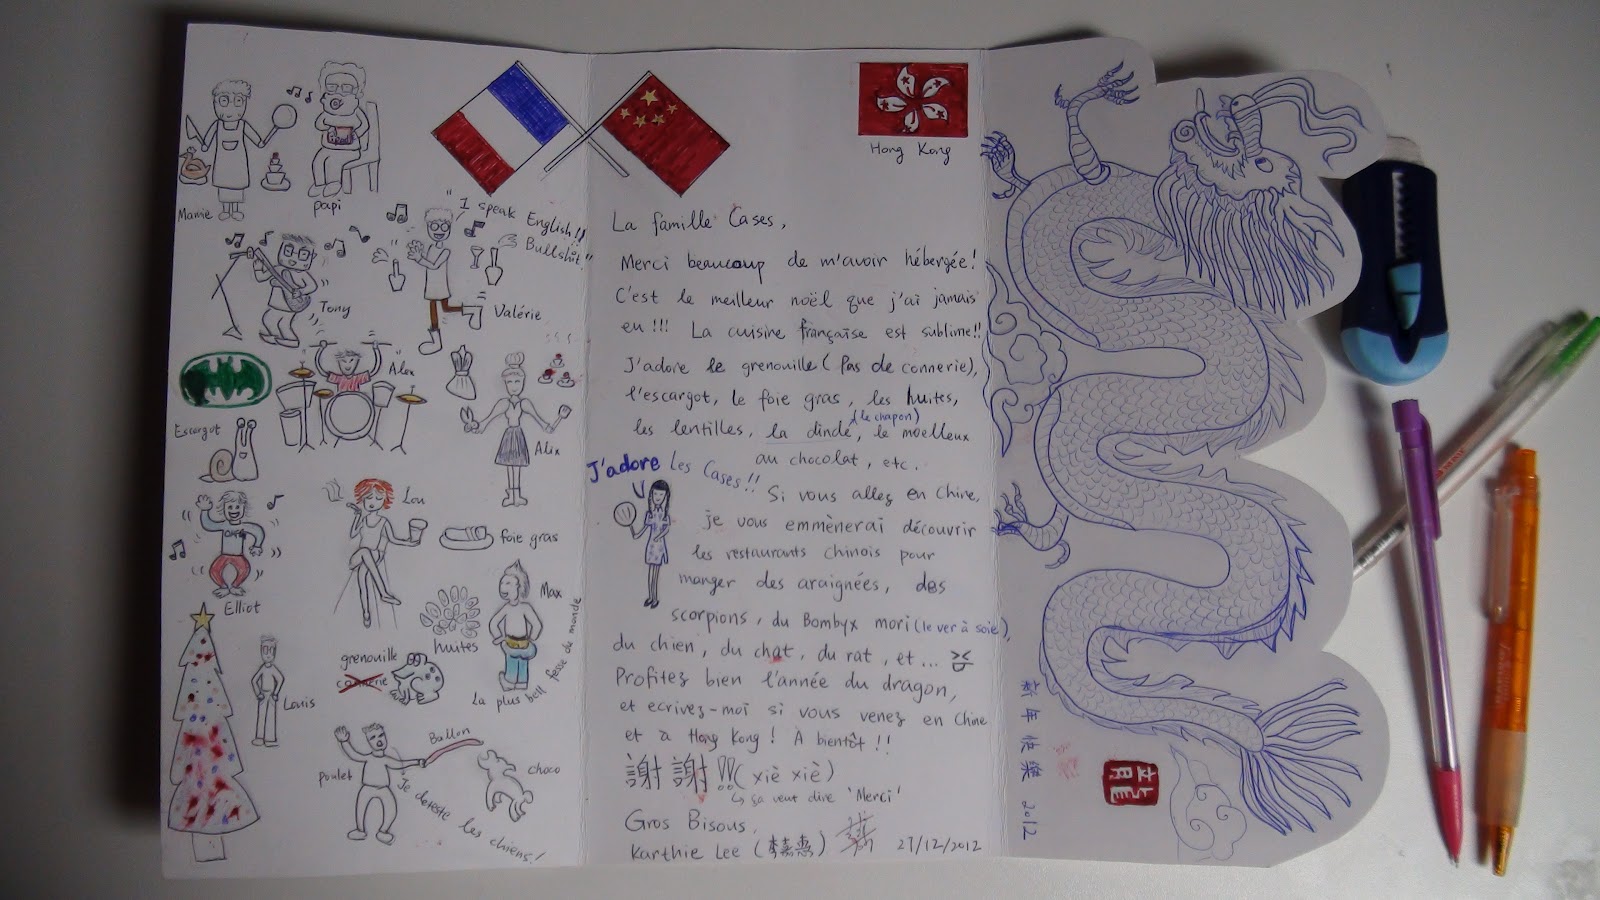 Mamie
papi
"I speak English!!
Bullshit."
Tony
Valérie
Alex
Escargot
Alix
Lou
Elliot
foie gras
Max
huîtes
La plus bell fesse du monde
grenouille
connerie
Louis
poulet
Ballon
choco
Je déteste les chiens!
Hong Kong
La famille Cases,
Merci beaucoup de m'avoir hébergée!
C'est le meilleur noël que j'ai jamais
eu!!! La cuisine française est sublime!!
J'adore le grenouille (Pas de connerie),
l'escargot, le foie gras, les huîtes,
(le chapon)
les lentilles, la dinde, le moelleux
au chocolat, etc.
J'adore Les Cases!!
Si vous allez en Chine,
je vous emmènerai découvrir
les restaurants chinois pour
manger des araignées, des
scorpions, du Bombyx mori (le ver à soie),
du chien, du chat, du rat, et...
Profitez bien l'année du dragon,
et ecrivez-moi si vous venez en Chine
et à Hong Kong! À bientôt!!
謝謝!!(xiè xiè)
↳ ça veut dire 'Merci'
Gros Bisous,
Karthie Lee (李嘉惠)
27/12/2012
新年快樂 2012
龍